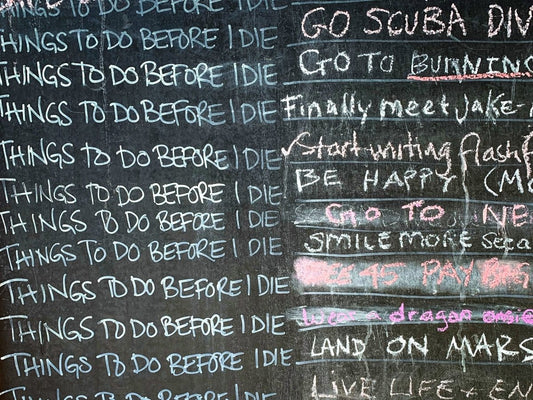 THINGS TO DO BEFORE I DIE GO SCUBA DIV
THINGS TO DO BEFORE I DIE GO TO BURNING
THINGS TO DO BEFORE I DIE Finally meet Jake-
THINGS TO DO BEFORE I DIE Start writing flash f
THINGS TO DO BEFORE I DIE BE HAPPY (Mo
THINGS TO DO BEFORE I DIE GO TO NE
THINGS TO DO BEFORE I DIE SMILE MORE
THINGS TO DO BEFORE I DIE 45 PAY
THINGS TO DO BEFORE I DIE a dragon
THINGS TO DO BEFORE I DIE LAND ON MARS
THINGS TO DO BEFORE I DIE LIVE LIFE + EN
THINGS TO DO BEFORE I DIE